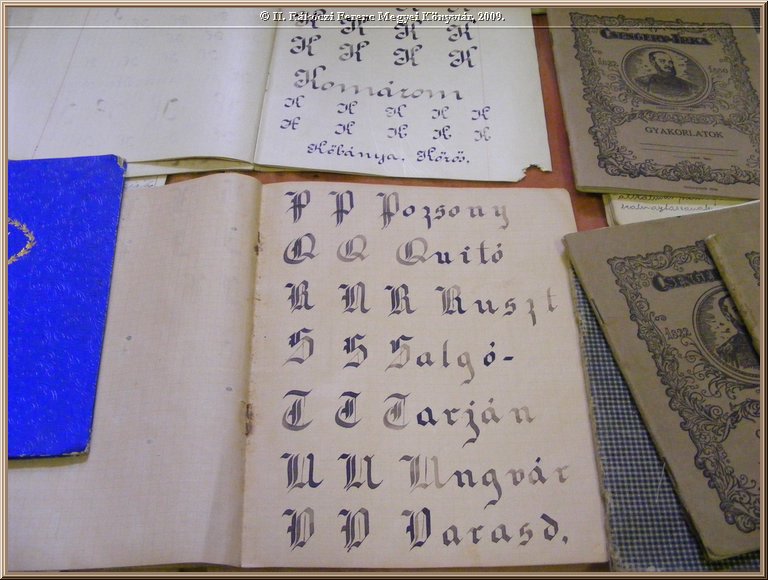 © II. Rákóczi Ferenc Megyei Könyvtár, 2009.
K K K K
K K K K
Komárom
K K K K K
K K K K K
Kőbánya. Kőrös.
CSENGERY-IRKA
1822 1880
GYAKORLATOK
P P Pozsony
Q Q Quitó
R R R Ruszt
S S Salgó-
T T Tarján
U U Ungvár
V V Varasd.
CSENGERY
1822